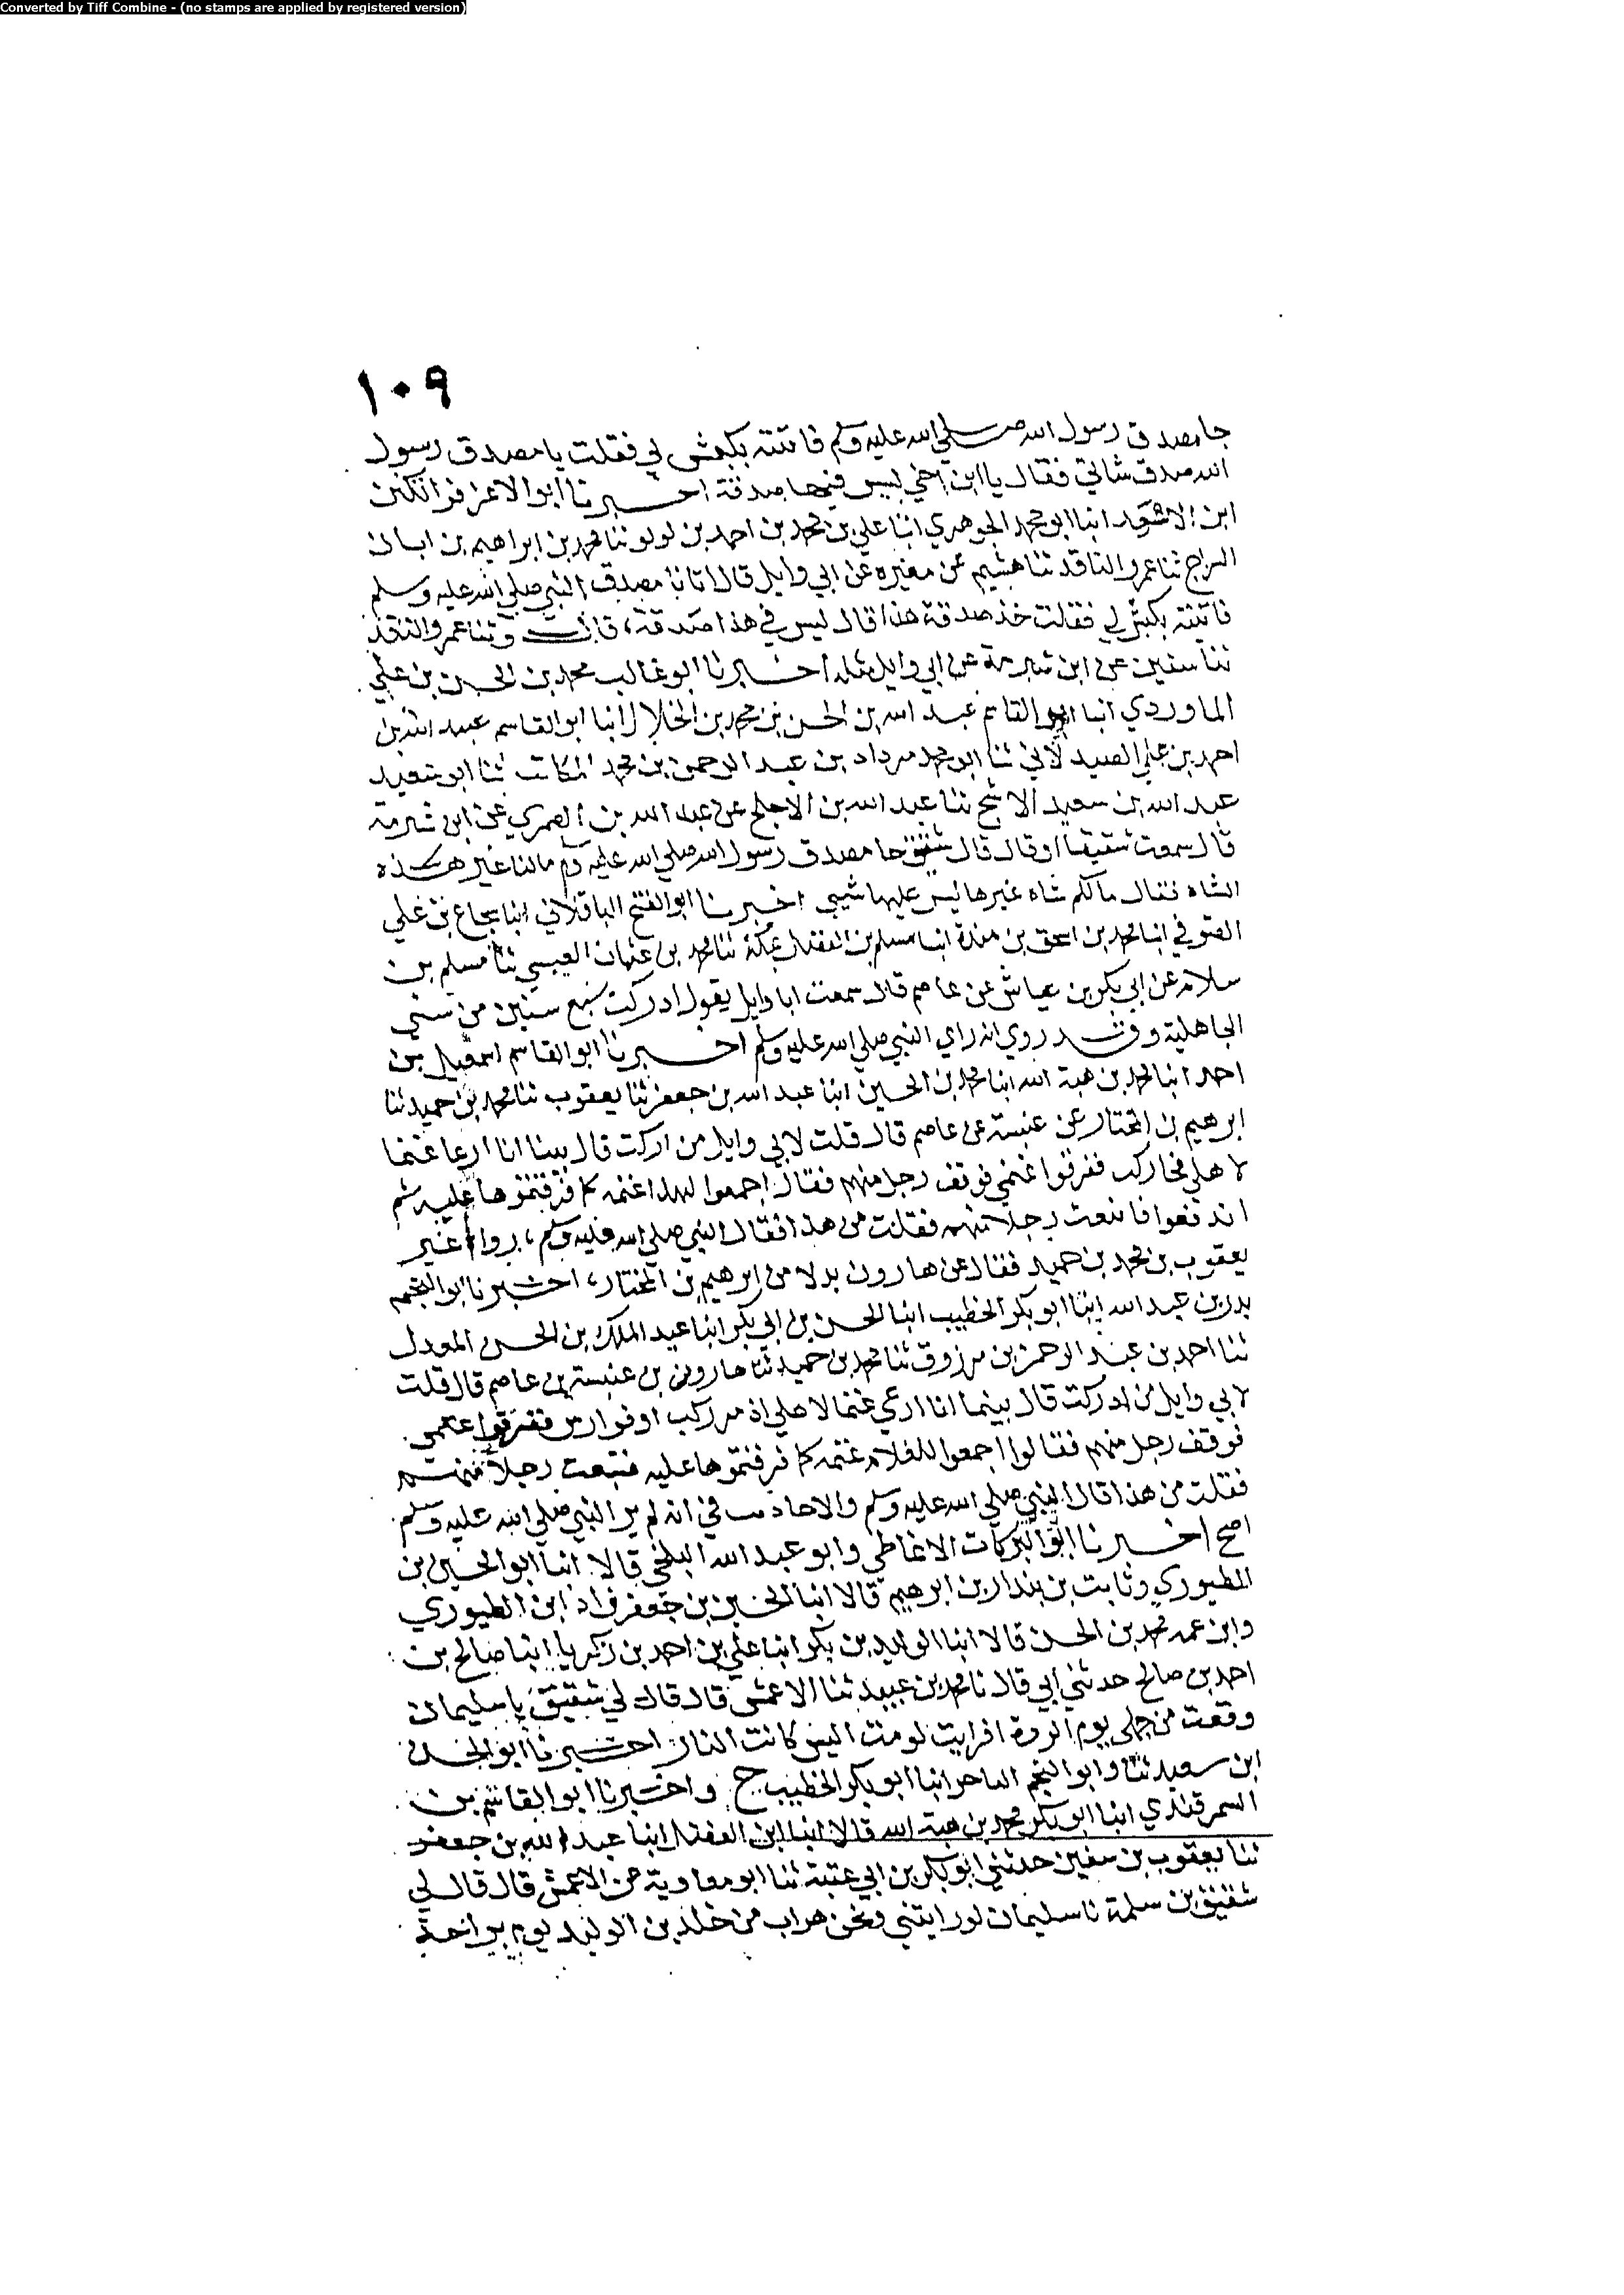 Converted by Tiff Combine - (no stamps are applied by registered version)
١٠٩
جا مصدق رسول الله صلي الله عليه وسلم فاتيته بكبش لي فقلت يا مصدق رسول
الله صدق شاتي فقال يا ابن اخي ليس فيها صدقة اخبرنا ابو الاعز قراتكين
ابن الاسعد انبا ابو محمد الجوهري انبا علي بن محمد بن احمد بن لولو ثنا محمد بن ابراهيم بن ابان
السراج ثنا عمرو الناقد ثنا هشيم عن مغيره عن ابي وايل قال اتانا مصدق النبي صلي الله عليه وسلم
فاتيته بكبش لي فقلت خذ صدقة هذا قال ليس في هذا صدقة، قال وثنا عمرو الناقد
ثنا سفين عن ابن شبرمة عن ابي وايل مثله اخبرنا ابو غالب محمد بن الحسن بن علي
الماوردي انبا ابو القاسم عبد الله بن الحسن بن محمد بن الخلال انبا ابو القاسم عبيد الله بن
احمد بن علي الصيدلاني ثنا ابو محمد مرداد بن عبد الرحمن بن محمد الكاتب ثنا ابو سعيد
عبد الله بن سعيد الاشج ثنا عبد الله بن الاجلح عن عبد الله بن العمري عن ابن شبرمة
قال سمعت شقيقا او قال قال شقيق جا مصدق رسول الله صلي الله عليه وسلم مالنا غير هذه
الشاه فقال مالكم شاه غيرها ليس عليها شيي اخبرنا ابو الفتح الباقلاني انبا شجاع بن علي
الصوفي انبا محمد بن اسحق بن مندة انبا مسلم بن الفضل بمكة ثنا محمد بن عثمان العبسي ثنا مسلم بن
سلام عن ابي بكر بن عياش عن عاصم قال سمعت ابا وايل يقول ادركت سبع سنين من سني
الجاهلية وقد روي انه راي النبي صلي الله عليه وسلم اخبرنا ابو القاسم اسمعيل بن
احمد انبا محمد بن هبة الله انبا محمد بن الحسين انبا عبد الله بن جعفر ثنا يعقوب ثنا محمد بن حميد ثنا
ابرهيم بن المختار عن عنبسة عن عاصم قال قلت لابي وايل من ادركت قال بينا انا ارعا غنما
لاهلي فجا ركب ففرقوا غنمي فوقف رجل منهم فقال اجمعوا لهذا غنمه كما فرقتموها عليه ثم
اندفعوا فاتبعت رجلا منهم فقلت من هذا فقال النبي صلي الله عليه وسلم، رواه غير
يعقوب بن محمد بن حميد فقال عن هارون بدلا من ابرهيم بن المختار، اخبرنا ابو النجم
بدر بن عبد الله انبا ابو بكر الخطيب انبا الحسن بن ابي بكر انبا عبد الملك بن الحسن المعدل
ثنا احمد بن عبد الرحمن بن مرزوق ثنا محمد بن حميد ثنا هارون بن عنبسة عن عاصم قال قلت
لابي وايل من ادركت قال بينما انا ارعي غنما لاهلي اذ مر ركب او فوارس ففرقوا غنمي
فوقف رجل منهم فقالوا اجمعوا للغلام غنمه كما فرقتموها عليه فتبعت رجلا منهم
فقلت من هذا قال النبي صلي الله عليه وسلم والاحاديث في انه لم ير النبي صلي الله عليه وسلم
اصح اخبرنا ابو البركات الانماطي وابو عبد الله البلخي قالا انبا ابو الحسين بن
الطيوري وثابت بن بندار بن ابرهيم قالا انبا الحسين بن جعفر زاد ابن الطيوري
وابن عمه محمد بن الحسن قالا انبا الوليد بن بكر انبا علي بن احمد بن زكريا انبا صالح بن
احمد بن صالح حدثني ابي قال نا محمد بن عبيد ثنا الاعمش قال قال لي شقيق يا سليمان
وقعت من جملي يوم الردة افرايت لو مت اليس كانت النار اخبرنا ابو الحسن
ابن سعيد ثنا وابو النجم التاجر انبا ابو بكر الخطيب ح واخبرنا ابو القاسم بن
السمرقندي انبا ابو بكر محمد بن هبة الله قالا انبا ابن الفضل انبا عبد الله بن جعفر
ثنا يعقوب بن سفين حدثني ابو بكر بن ابي عتبة ثنا ابو معاوية عن الاعمش قال قال لي
شقيق بن سلمة يا سليمان لو رايتني ونحن هراب من خالد بن الوليد يوم بزاخة